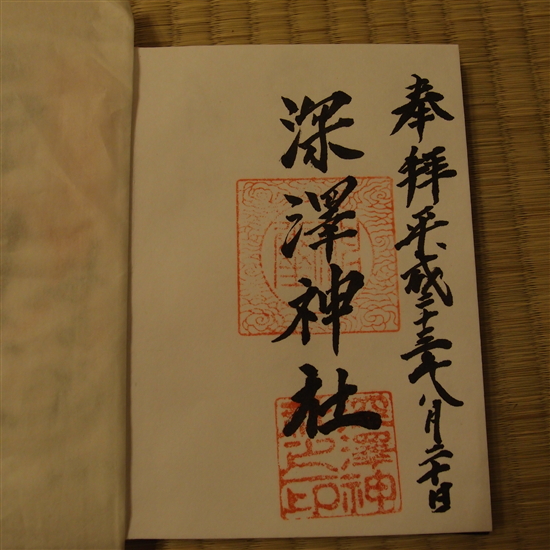 奉拝平成二十三年八月二十日
深澤神社
深澤神
社之印